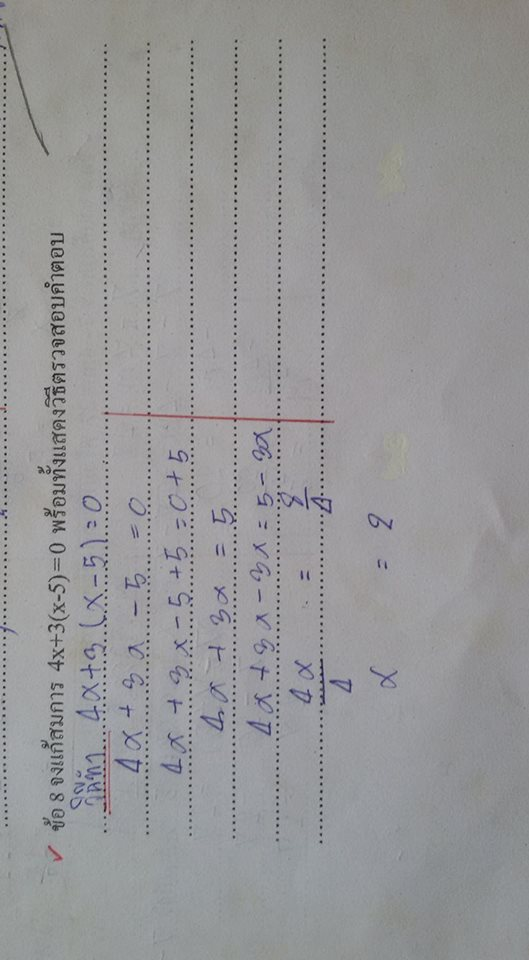 ข้อ 8 จงแก้สมการ 4x+3(x-5)=0 พร้อมทั้งแสดงวิธีตรวจสอบคำตอบ
วิธีทำ 4x+3(x-5)=0
4x+3x-5=0
4x+3x-5+5=0+5
4x+3x=5
4x+3x-3x=5-3x
4x/4 = 8/4
x = 2